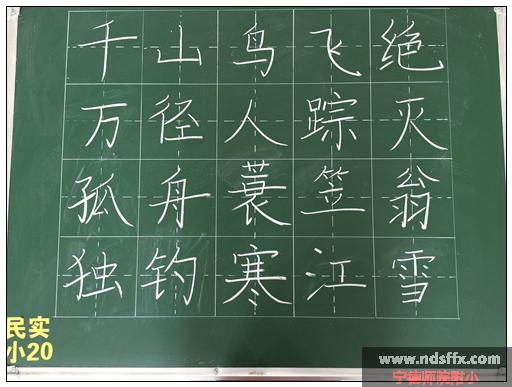 千山鸟飞绝
万径人踪灭
孤舟蓑笠翁
独钓寒江雪
民实
小20
www.ndsffx.com
宁德师院附小